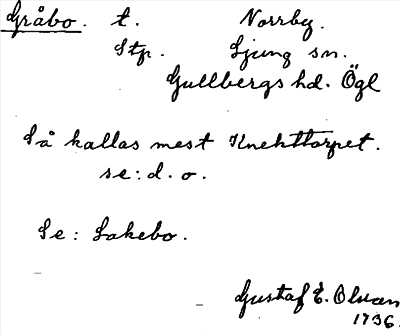 Gråbo. t. Norrby.
Stp. Ljung sn.
Gullbergs hd. Ögl
Så kallas mest Knekttorpet.
se: d. o.
Se: Lakebo.
Gustaf E. Olsson
1936.